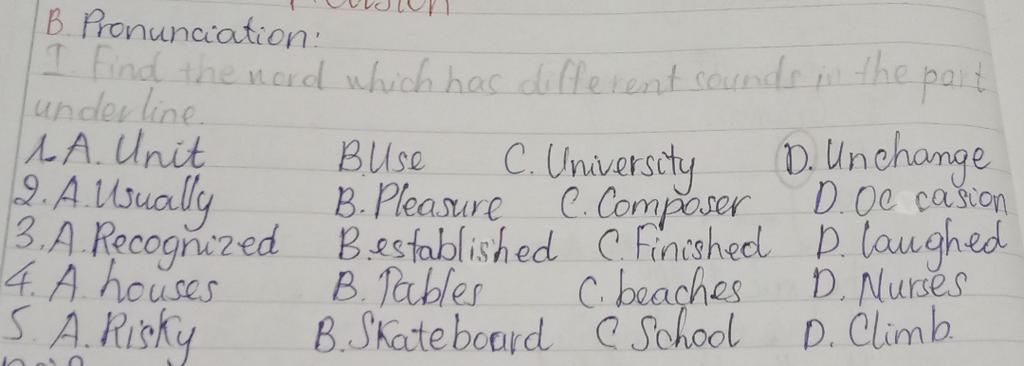 B Pronunciation:
I. Find the word which has different sounds in the part
underline.
1. A. Unit B. Use C. University D. Unchange
2. A. Usually B. Pleasure C. Composer D. Occasion
3. A. Recognized B. established C. Finished D. laughed
4. A. houses B. Tables C. beaches D. Nurses
5. A. Risky B. Skateboard C School D. Climb.